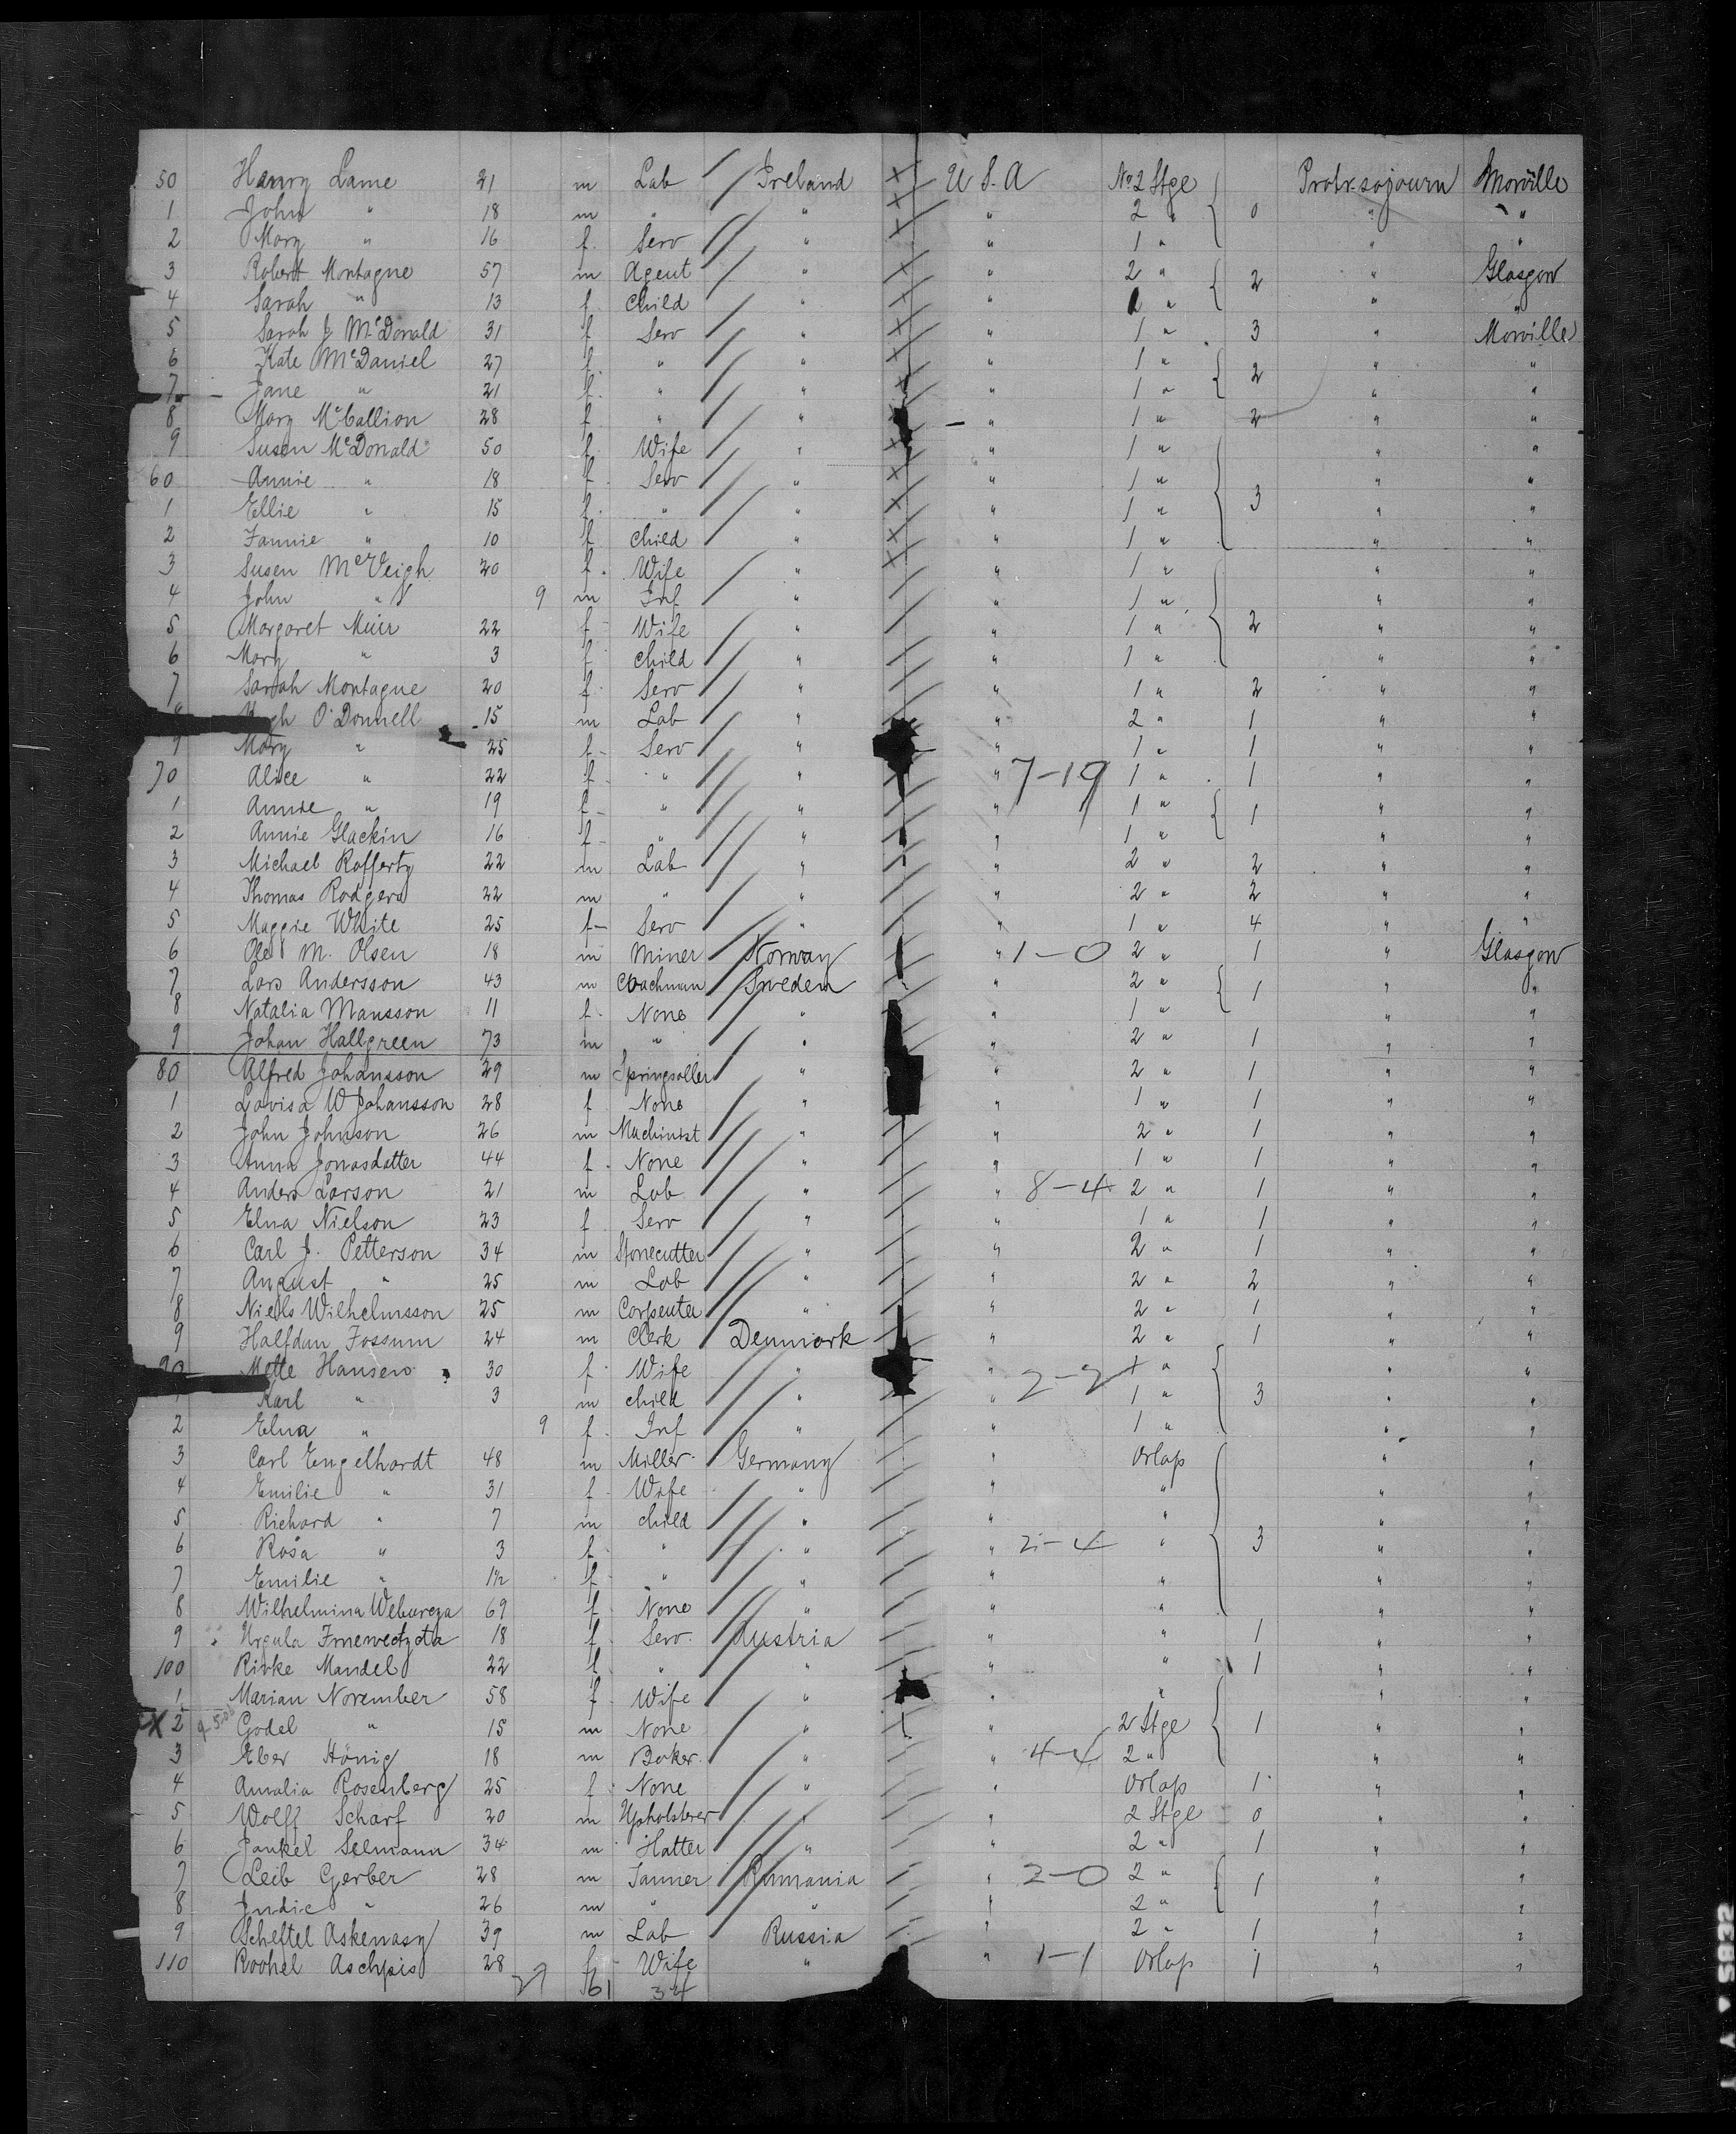 50 Henry Lame 21 m Lab Ireland U S. A No 2 Stge 0 Protr. sojourn Moville
1 John " 18 m " " " 2 " " "
2 Mary " 16 f. Serv " " 1 " " "
3 Robert Montague 57 m Agent " " 2 " 2 " Glasgow
4 Sarah " 13 f. Child " " 1 " " "
5 Sarah J McDonald 31 f Serv " " 1 " 3 " Moville
6 Kate McDaniel 27 f. " " " 1 " 2 " "
7 Jane " 21 f. " " " 1 " " "
8 Mary McCallion 28 f " " " 1 " 2 " "
9 Susen McDonald 50 f. Wife " " 1 " " "
60 Annie " 18 f. Serv " " 1 " 3 " "
1 Ellie " 15 f. " " " 1 " " "
2 Fannie " 10 f child " " 1 " " "
3 Susen McVeigh 20 f. Wife " " 1 " " "
4 John " 9 m Inf " " 1 " " "
5 Margaret Muir 22 f Wife " " 1 " 2 " "
6 Mary " 3 f child " " 1 " " "
7 Sarah Montague 20 f. Serv " " 1 " 2 " "
O'Donnell 15 m Lab " " 2 " 1 " "
9 Mary " 25 f Serv " " 1 " 1 " "
70 Alice " 22 f " " " 7-19 1 " 1 " "
1 Annie " 19 f " " " 1 " 1 " "
2 Annie Glackin 16 f " " " 1 " " "
3 Michael Rafferty 22 m Lab " " 2 " 2 " "
4 Thomas Rodgers 22 m " " " 2 " 2 " "
5 Maggie White 25 f Serv " " 1 " 4 " "
6 Ole M. Olsen 18 m Miner Norway " 1-0 2 " 1 " Glasgow
7 Lars Andersson 43 m Coachman Sweden " 2 " 1 " "
8 Natalia Mansson 11 f. None " " 1 " " "
9 Johan Hallgreen 73 m " " " 2 " 1 " "
80 Alfred Johansson 29 m " " 2 " 1 " "
1 Lovisa W Johansson 28 f None " " 1 " 1 " "
2 John Johnson 26 m Machinist " " 2 " 1 " "
3 Anna Jonasdatter 44 f. None " " 1 " 1 " "
4 Anders Larson 21 m Lab " " 8-4 2 " 1 " "
5 Elna Nielson 23 f Serv " " 1 " 1 " "
6 Carl J. Petterson 34 m Stonecutter " " 2 " 1 " "
7 August " 25 m Lab " " 2 " 2 " "
8 Niels Wilhelmsson 25 m Carpenter " " 2 " 1 " "
9 Halfdan Fossum 24 m Clerk Denmark " 2 " 1 " "
90 Mette Hansen 30 f. Wife " " 2-2 1 " " "
1 Karl " 3 m child " " 1 " 3 " "
2 Elna " 9 f. Inf " " 1 " " "
3 Carl Engelhardt 48 m Miller Germany " Orlop " "
4 Emilie " 31 f Wife " " " " "
5 Richard " 7 m child " " " " "
6 Rosa " 3 f. " " " 2-4 " 3 " "
7 Emilie " 1½ f " " " " " "
8 Wilhelmina 69 f. None " " " " "
9 Ursula 18 f. Serv. Austria " " 1 " "
100 Rivke Mandel 22 f. " " " " 1 " "
1 Marian November 58 f Wife " " " " "
X 2 Godel " 15 m None " " 2 Stge 1 " "
3 Eber Hönig 18 m Baker " " 4-4 2 " " "
4 Amalia Rosenberg 25 f None " " Orlop 1 " "
5 Wolff Scharf 20 m Upholsterer " " 2 Stge 0 " "
6 Jankel Selmann 34 m Hatter " " 2 " 1 " "
7 Leib Gerber 28 m Tanner Rumania " 2-0 2 " 1 " "
8 Judic " 26 m " " " 2 " " "
9 Scheftel Askenasy 39 m Lab Russia " 2 " 1 " "
110 Roohel Aschpis 28 f Wife " " 1-1 Orlop 1 " "
27 61 34